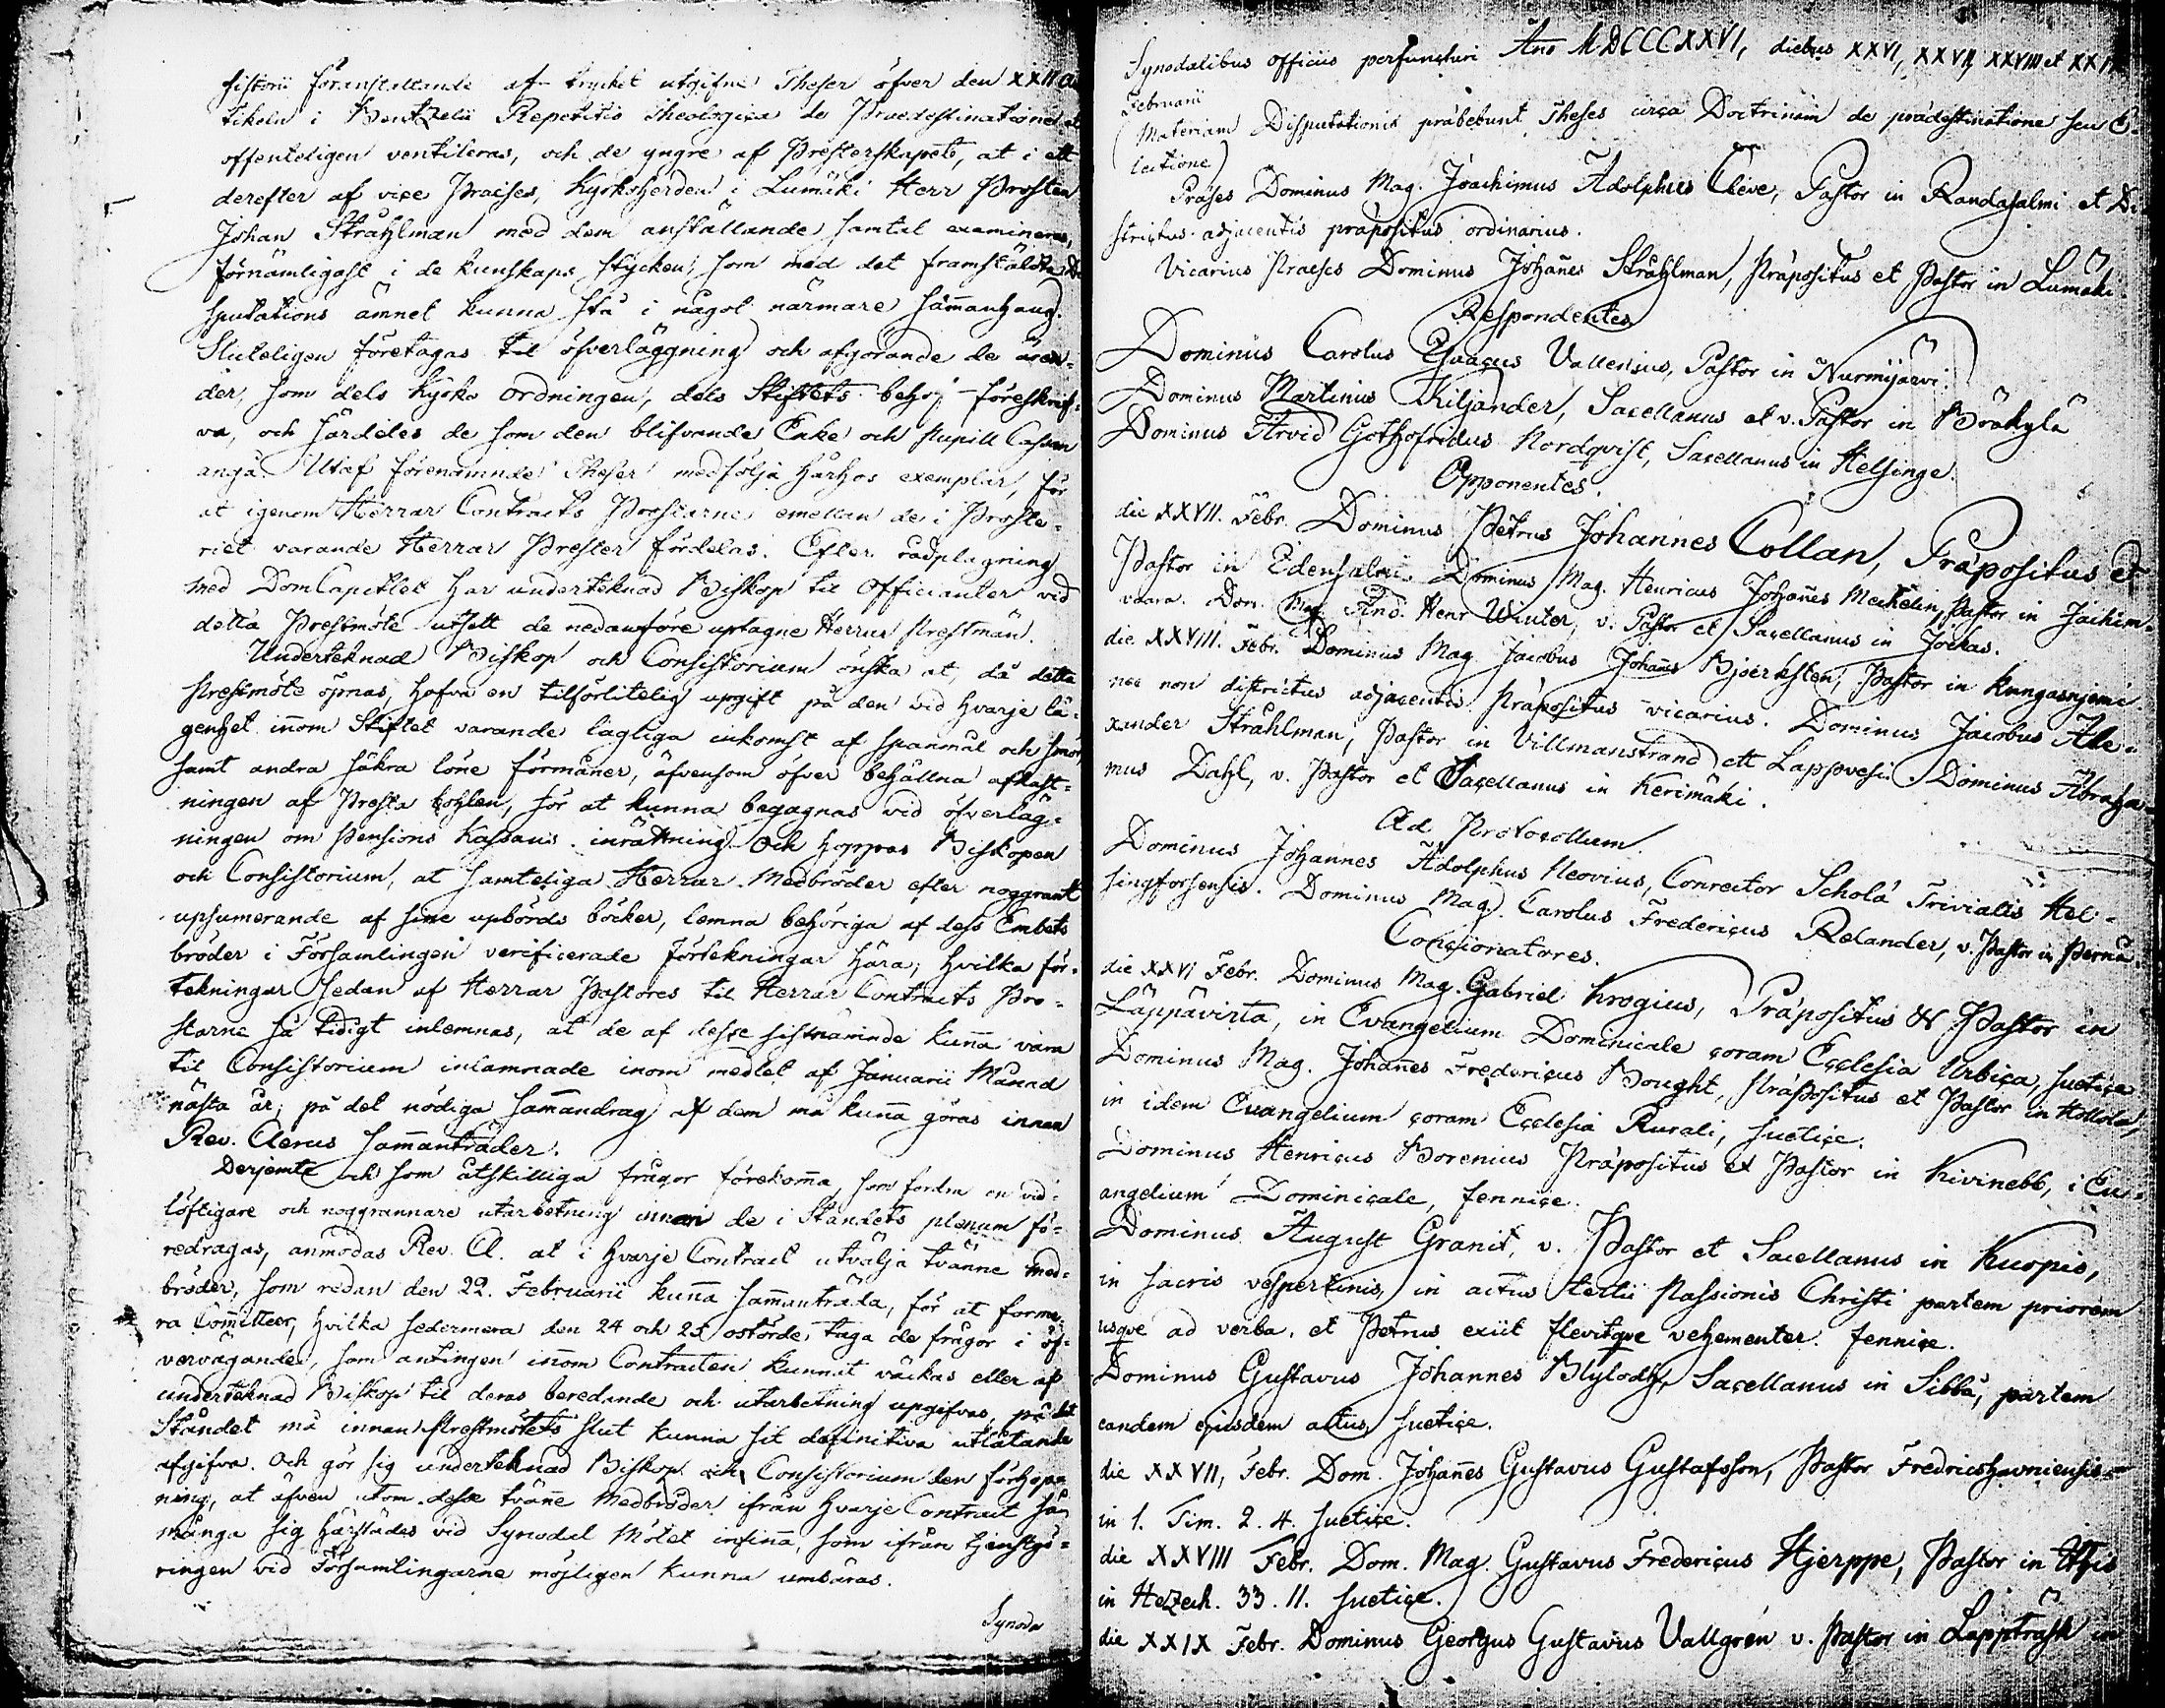 sistorii föranstaltande af trycket utgifne Theser öfver den XXII Ar
tikeln i Bentzelii Repetitio Theologica de Praedestinatione at
offenteligen ventileras, och de yngre af Presterskapets, at i ett
derefter af vice Praeses, Kyrkoherden i Lumäki Herr Prosten
Johan Stråhlman med dem anställande samtal examineras,
förnämligast i de kunskaps stycken, som med det framstälda Di
sputations ämnet kunna stå i något närmare sam̄anhang.
Sluteligen företagas til öfverläggning och afgörande de ären-
der, som dels Kyrko ordningen, dels Stiftets behof föreskrif-
va, och särdeles de som den blifvande Enke och Pupill Cassan
angå. Utaf förenämnde Theser medfölja härhos exemplar, för
at igenom Herrar Contracts Prostarne emellan de i Proste-
riet varande Herrar Prester fördelas. Efter rådplägning
med DomCapitlet har undertecknad Biskop til Officianter vid
detta Prestmöte utsett de nedanföre uptagne Herrar Prestmän.
Underteknad Biskop och Consistorium önska at, då detta
Prestmöte öpnas, hafva en tilförlitelig upgift på den vid hvarje lä-
genhet in̄om Stiftet varande lagliga inkomst af spanmål och smör,
samt andra säkra löne förmåner, äfvensom öfver behållna afkast-
ningen af Presta bohlen, för at kunna begagnas vid öfverläg-
ningen om Pensions Kassans inrättning. Och hoppas Biskopen
och Consistorium, at samteliga Herrar Medbröder efter noggrant
upsumerande af sine upbörds böcker, lemna behöriga af dess Embets
bröder i Församlingen verificerade förtekningar hära, hvilka för-
tekningar sedan af Herrar Pastores til Herrar Contracts Pro-
starne så tidigt inlemnas, at de af desse sistnämnde kun̄a vara
til Consistorium inlämnade inom medlet af Januarii Månad
nästa år, på det nödiga sam̄andrag af dem må kun̄a göras innan
Rev. Clerus sam̄anträder.
Derjemte och som åtskilliga frågor förekom̄a, som fordra en vid-
löftigare och noggrannare utarbetning innan de i Ståndets plenum fö-
redragas, anmodas Rev. Cl. at i hvarje Contract utvälja tvänne Med-
bröder, som redan den 22. Februarii kun̄a sam̄anträda, för at forme-
ra Com̄itteer, hvilka sedermera den 24 och 25 ostörde, taga de frågor i öf-
vervägande, som antingen in̄om Contracten kunnat väckas eller af
underteknad Biskop til deras beredande och utarbetning upgifvas, på det
Ståndet må innan Prestmötets slut kunna sit definitiva utlåtande
afgifva. Och gör sig underteknad Biskop och Consistorium den förhopp
ning, at äfven utom desse tvän̄e Medbröder ifrån hvarje Contract så
många sig härstädes vid Synodal Mötet infin̄a, som ifrån tjenstgö-
ringen vid Församlingarne möjligen kunna umbäras.
Synoda
Synodalibus officiis perfuncturi An̄o MDCCCXXVI, diebus XXVI, XXVII, XXVIII et XXIX
Februarii
(Materiam Disputationis präbebunt Theses circa Doctrinam de prädestinatione seu E-
lectione)
Präses Dominus Mag. Joachimus Adolphus Cleve, Pastor in Randasalmi et Di-
strictus adjacentis präpositus ordinarius.
Vicarius Praeses Dominus Johan̄es Stråhlman, Präpositus et Pastor in Lumäki.
Respondentes
Dominus Carolus Gustavus Vallenius, Pastor in Nurmijärvi.
Dominus Martinus Kiljander, Sacellanus et v. Pastor in Bräkylä
Dominus Arvid Gothofridus Nordqvist, Sacellanus in Helsinge.
Opponentes.
die XXVII. Febr. Dominus Petrus Johannes Collan, Präpositus et
Pastor in Idensalmi. Dominus Mag. Henricus Johan̄es Mechelin, Pastor in Jockim-
vaara. Dom. Mag. And. Henr Winter, v. Pastor et Sacellanus in Jockas.
die XXVIII. Febr. Dominus Mag. Jacobus Johan̄s Bjoerksten, Pastor in Kangasnjemi
nec non districtus adjacentis Präpositus vicarius. Dominus Jacobus Ale-
xander Stråhlman, Pastor in Villmanstrand ett Lappvesi. Dominus Abraha-
mus Dahl, v. Pastor et Sacellanus in Kerimäki.
Ad Protocollum.
Dominus Johannes Adolphus Neovius, Conrector Scholä Trivialis Hel-
singforsensis. Dominus Mag. Carolus Fredericus Relander, v. Pastor in Pernå.
Concionatores.
die XXVI Febr. Dominus Mag. Gabriel Krogius, Präpositus & Pastor in
Läppävirta, in Evangelium Dominicale coram Ecclesia Urbica, suetice
Dominus Mag. Johan̄es Fredericus Bought, Präpositus et Pastor in Hollola,
in idem Evangelium coram Ecclesia Rurali, suetice.
Dominus Henricus Borenius Präpositus et Pastor in Kivinebb, i Ev-
angelium Dominicale, fennice.
Dominus August Granit, v. Pastor et Sacellanus in Kuopio,
in sacris vespertinis, in actus tertii Passionis Christi partem priorem
usqve ad verba, et Petrus exiit flevitqve vehementer. fennice.
Dominus Gustavus Johannes Blylodh, Sacellanus in Sibbå, partem
eandem ejusdem actus, suetice.
die XXVII, Febr. Dom. Johan̄es Gustavus Gustafsson, Pastor Fredricshavniensis
in 1. Tim. 2. 4. suetice.
die XXVIII Febr. Dom. Mag. Gustavus Fredericus Hjerppe, Pastor in
in Hezech. 33. 11. suetice.
die XXIX Febr. Dominus Georgus Gustavus Vallgrén v. Pastor in Lapptråsk in